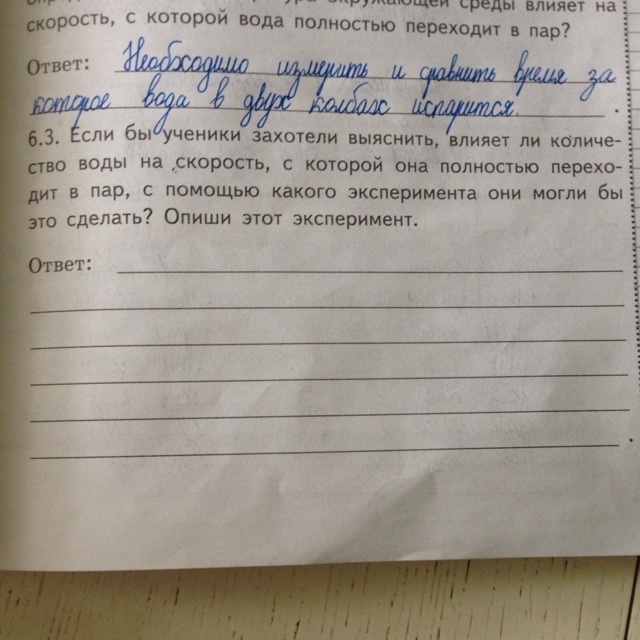 окружающей среды влияет на
скорость, с которой вода полностью переходит в пар?
Ответ: Необходимо измерить и сравнить время за
которое вода в двух колбах испарится. .
6.3. Если бы ученики захотели выяснить, влияет ли количе-
ство воды на скорость, с которой она полностью перехо-
дит в пар, с помощью какого эксперимента они могли бы
это сделать? Опиши этот эксперимент.
Ответ:
.